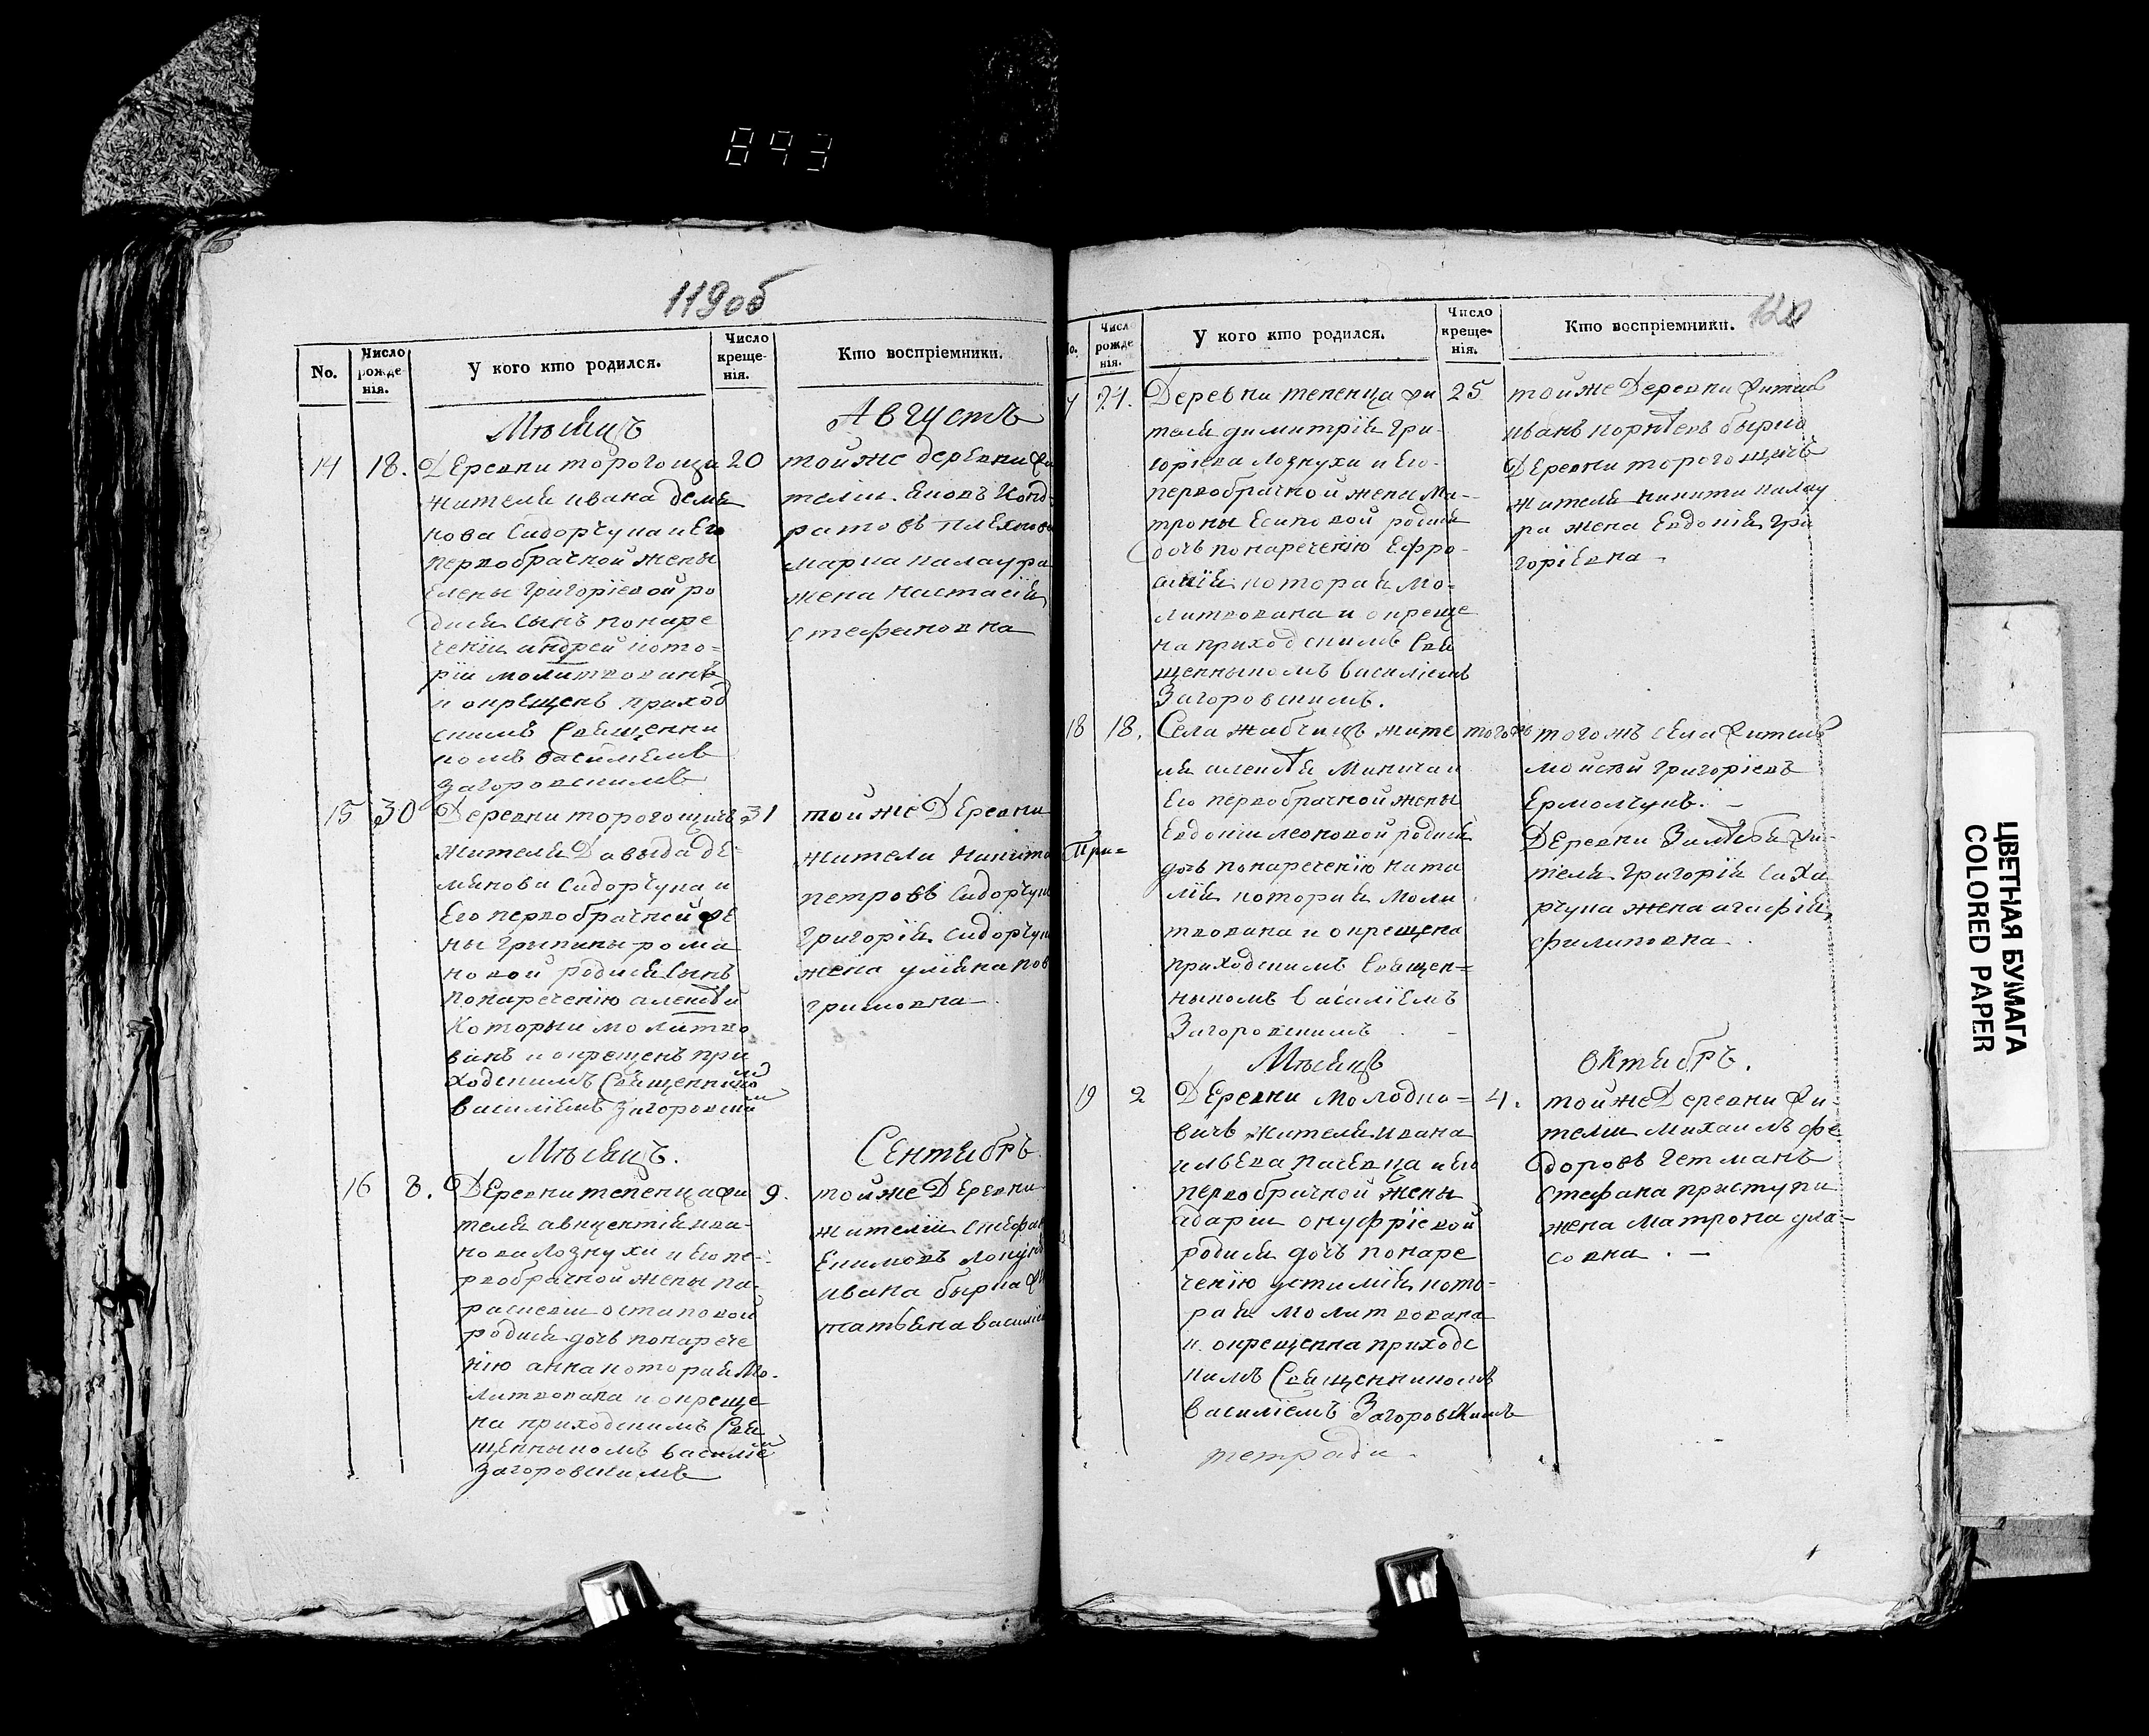 893
119об
No.
Число рожде-нія.
У кого кто родился.
Число креще-нія.
Кто воспріемники.
Мѣсяцъ
Августъ
14 18. Деревни торогощи 20
жителя ивана демя
нова Сидорчука и Его
первобрачной жены
Елены григоріевой ро
дися сынъ понаре
ченіи андрей кото=
рій молитвованъ
и окрещенъ приход
скимъ Священни
комъ василиемъ
загоровскимъ
тойже деревни жи
тели. Яковъ Конд-
ратовъ
марка калаура
жена настасія
стефановна
15 30 Деревни торогощичъ 31
жителя Давыда де-
мянова Сидорчука и
Его первобрачной же
ны грипины рома
новой родися сынъ
понареченію алексѣй
Который молитво
ванъ и окрещенъ при
ходскимъ Священнико
василіемъ Загоровски
тойже Деревни
жители никита
петровъ Сидорчук
григорій Сидорчук
жена уліяна
Мѣсяцъ.
Сентябръ.
16 8. Деревни тепенца жи 9.
теля авицентія ива-
нова Лознухи и Его пе-
рвобрачной жены па-
раскевіи остаповой
родися дочь понарече
нію анна которая Мо-
литвована и окреще
на приходскимъ Свя
щенныкомъ василіе
загоровскимъ
тойже Деревни
жителіи Стефан
Екимовъ
ивана бырка
татьяна василіе
120
No.
Число рожде нія.
У кого кто родился.
Число креще-нія.
Кто воспріемники.
24. Деревни тепенца жи 25
теля димитрія гри-
горіева Лознухи и Его-
первобрачной жены Ма-
троны Есиповой родися
дочь понареченію Ефро-
синія которая мо-
литвована и окреще
на приходскимъ Свя
щенныкомъ василіемъ
Загоровскимъ.
тойже Деревни житель
иванъ корнѣевъ бырко
Деревни торогощичъ
жителя никити калау
ра жена Евдокія гри
горіевна -
18 18. Села жабчицъ жите тогожъ
ля алексѣя Миничаи
Его первобрачной жены
Евдокіи леоновой родися
дочь понареченію ната
лія которая моли
твована и окрещена
приходскимъ Священ=
ныкомъ василіемъ
Загоровскимъ
тогожъ села житель
мойсѣй григоріевъ
Ермолчукъ. -
Деревни
теля григорія Саха
рчука жена агафія
филиповна
При=
Мѣсяцъ
октябръ.
19 2 Деревни Молодко= 4.
вичъ жителя ивана
ильева пасевца и Его
первобрачной жены
адаріи онуфріевой
родися дочь понаре
ченію устимія кото-
рая молитвована
и окрещенна приходс
кимъ Священникомъ
василіемъ Загоровскимъ
тойже Деревни жи-
тели михаилъ фе
доровъ гетманъ
стефана приступи
жена матрона ула-
совна . -
тетради
ЦВЕТНАЯ БУМАГА
COLORED PAPER